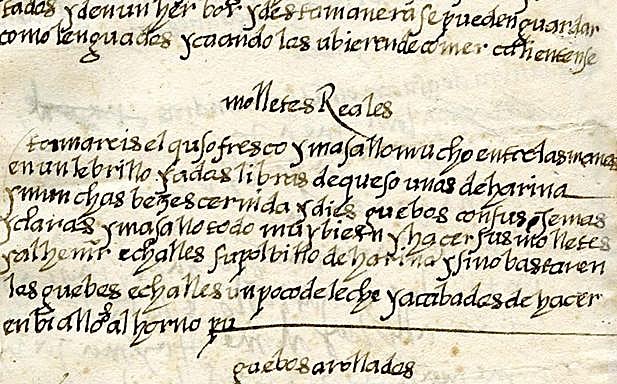 tadas y den un herbor y desta manera se pueden guardar
como lenguados y cuando las ubieren de comer calientense
molletes Reales
tomareis el queso fresco y masallo mucho entre las manos
en un lebrillo y a dos libras de queso una de harina
y munchas bezes cernida y dies guebos con sus yemas
y claras y masallo todo muy bien y hacer sus molletes
y al henir echalles su polbillo de harina y si no bastaren
los guebos echalles un poco de leche y acabados de hacer
enbiallos al horno
guebos arollados